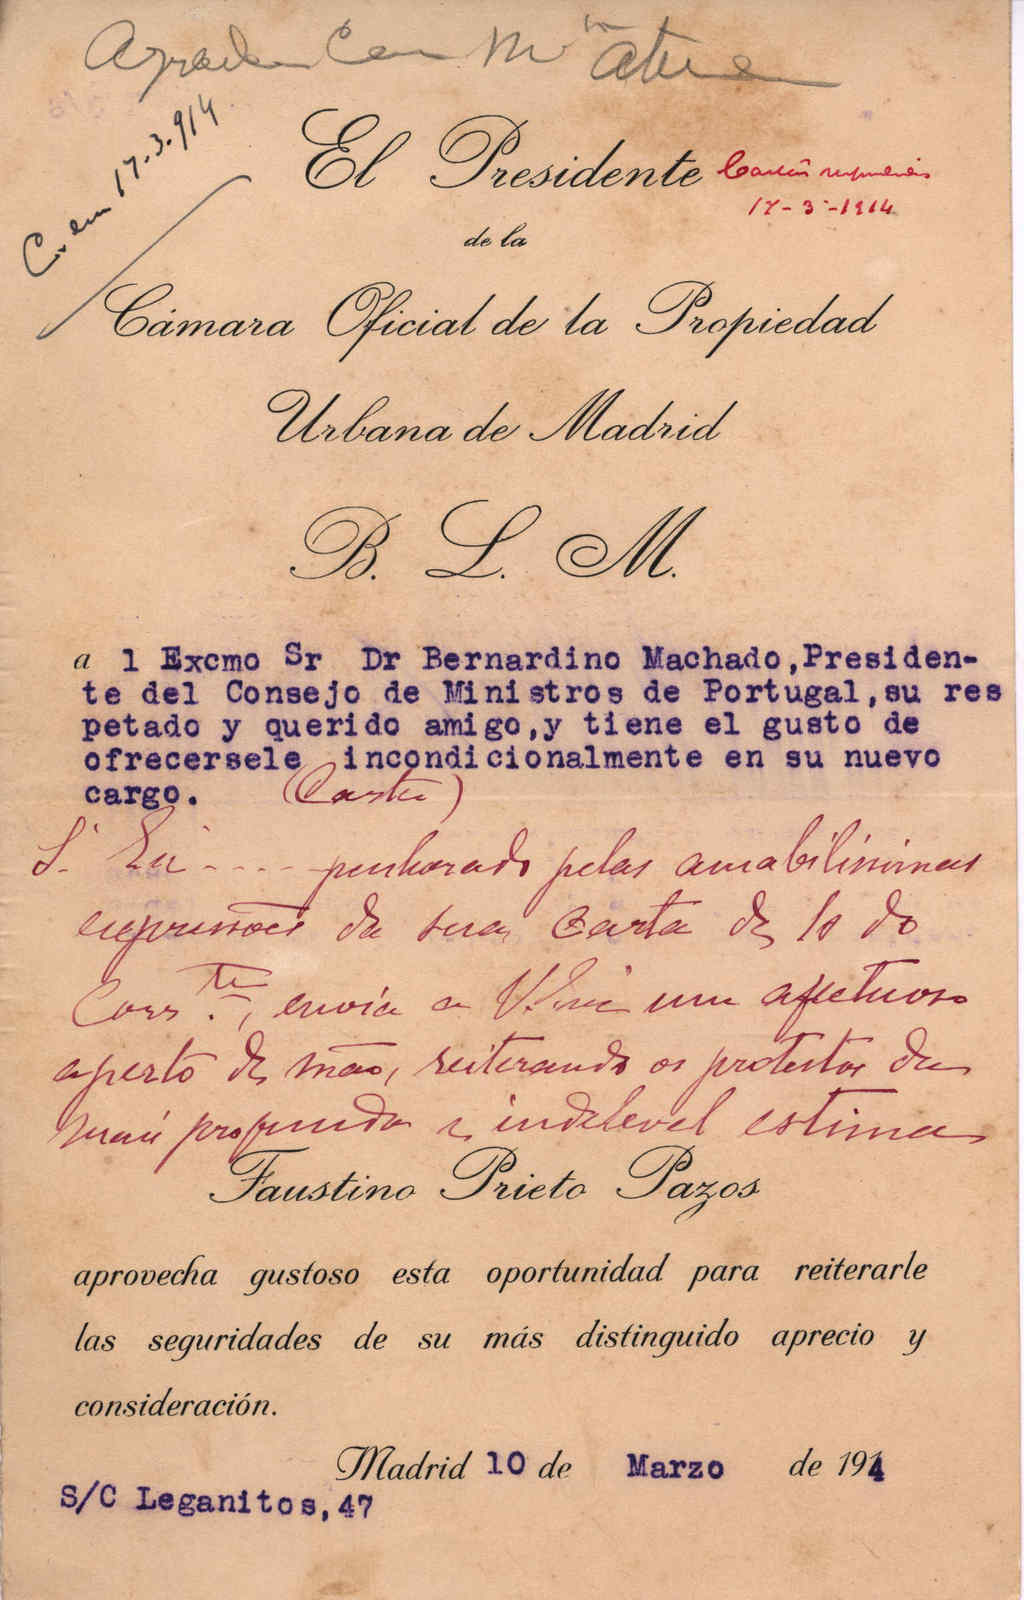 17-3-1914
17.3.914
El Presidente
de la
Cámara Oficial de la Propiedad
Urbana de Madrid
B. L. M.
a l Excmo Sr Dr Bernardino Machado, Presiden-
te del Consejo de Ministros de Portugal, su res
petado y querido amigo, y tiene el gusto de
ofrecersele incondicionalmente en su nuevo
cargo.
penhorado pelas amabilissimas
expressões da sua carta de 10 do
Corr.te, envia a V. um afectuoso
aperto de mão, reiterando os protestos da
mais profunda e indelevel estima
Faustino Prieto Pazos
aprovecha gustoso esta oportunidad para reiterarle
las seguridades de su más distinguido aprecio y
consideración.
Madrid 10 de Marzo de 1914
S/C Leganitos, 47